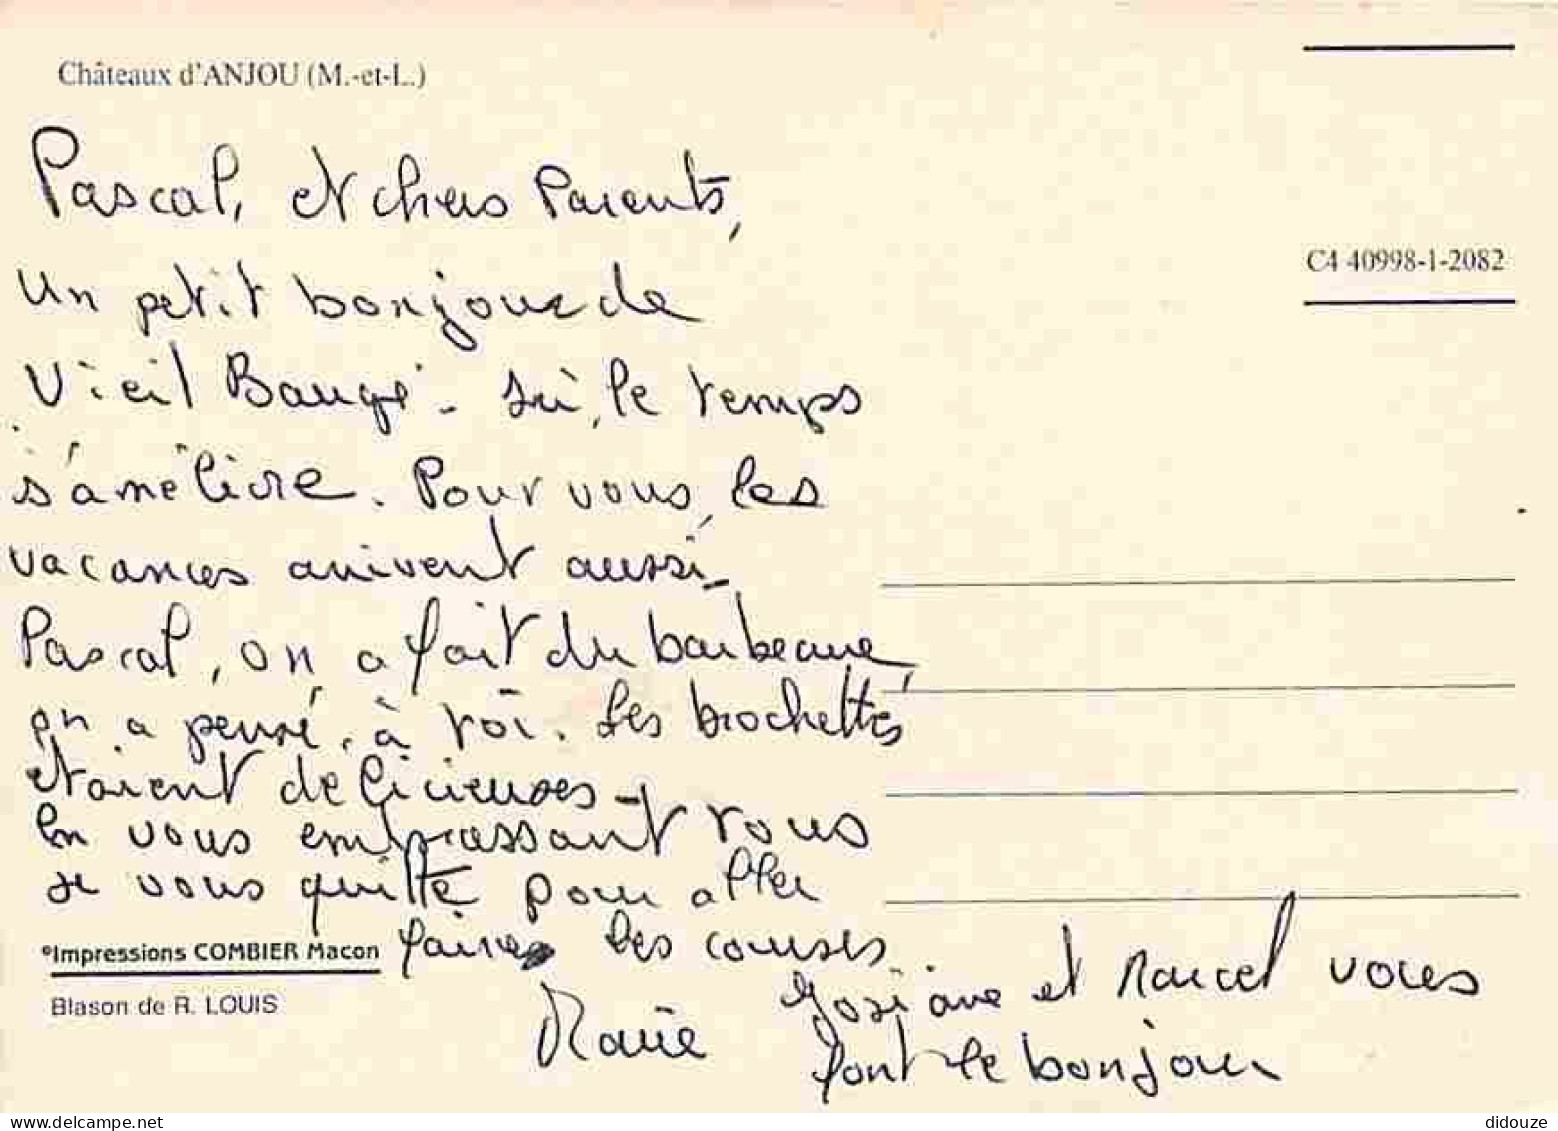 Châteaux d'ANJOU (M.-et-L.)
Pascal, et chers Parents,
C4 40998-1-2082
Un petit bonjour de
Vieil Baugé - Ici, le temps
s'améliore. Pour vous, les
vacances arrivent aussi -
Pascal, on a fait du barbecue,
on a pensé à toi. Les brochettes
étaient délicieuses -
En vous embrassant tous
je vous quitte pour aller
faire les courses
°Impressions COMBIER Macon
Blason de R. LOUIS
Marie
Josiane et Marcel vous
font le bonjour
didouze